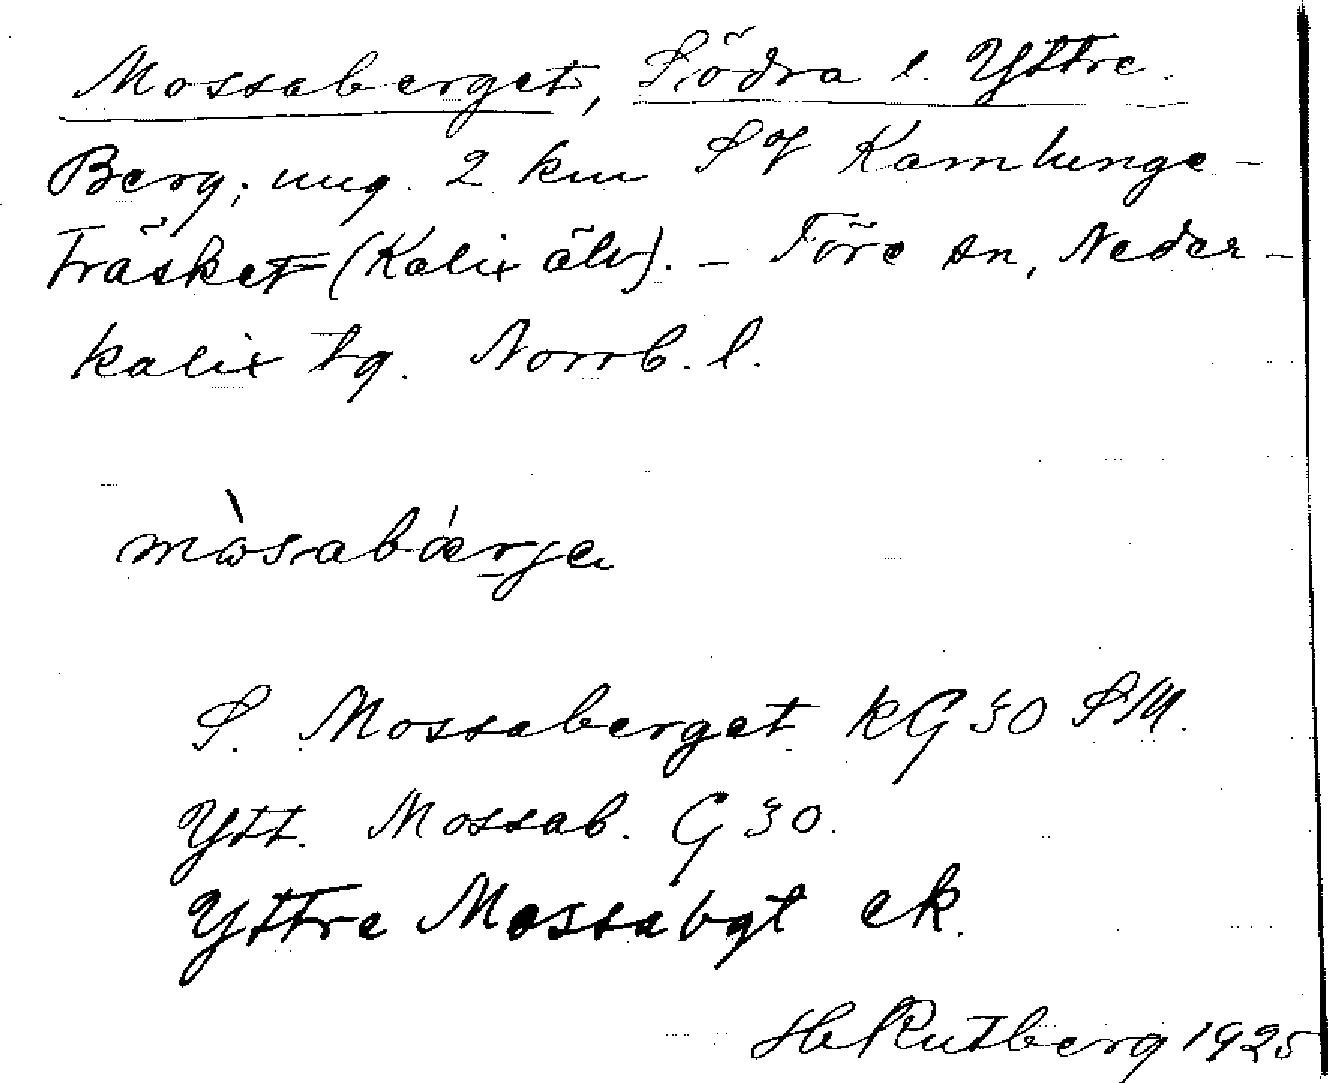 Mossaberget, Södra l. Yttre.
Berg; ung. 2 km SV Kamlunge-
träsket (Kalix älv). – Töre sn, Neder-
kalix tg. Norrb. l.
mòsabǽrje
S. Mossaberget KG 30 SM.
Ytt. Mossab. G 30.
Yttre Mossabgt ek.
H Rutberg 1925